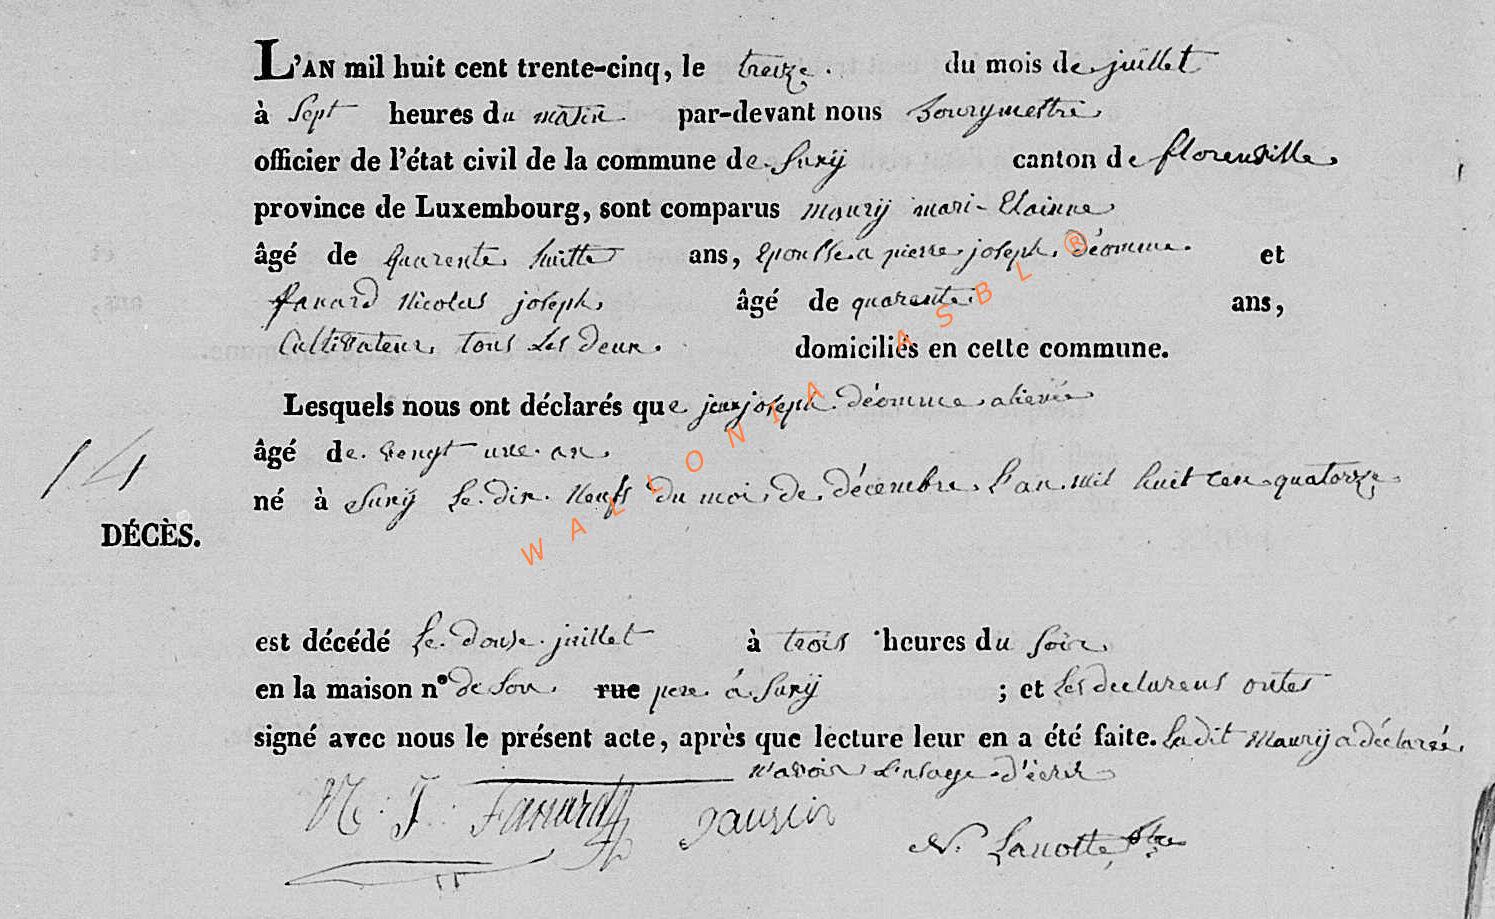 L'AN mil huit cent trente-cinq, le treize. du mois de juillet
à Sept heures du matin par-devant nous Bourymestre
officier de l'état civil de la commune de Suxÿ canton de florenville
province de Luxembourg, sont comparus maurÿ mari-Elainne
âgé de quarente huitte ans, Epousse a pierre joseph déomme. et
fanard Nicolas joseph âgé de quarente ans,
Cultivateur, tous Les deux. domiciliés en cette commune.
Lesquels nous ont déclarés que jean joseph déomme
âgé de vengt une an.
né à Suxÿ Le dix Neufs du moi de décembre L'an mil huit cen quatorze
14
DÉCÈS.
est décédé Le douse juillet à trois heures du soir
en la maison n° de Son rue pere á Suxÿ ; et Les declarens ontes
signé avec nous le présent acte, après que lecture leur en a été faite. La dit Maurÿ a déclarée
n'avoir L'usage d'écrir
N. J. Fanard Jauzein
N. Lanotte
WALLONIA ASBL ®